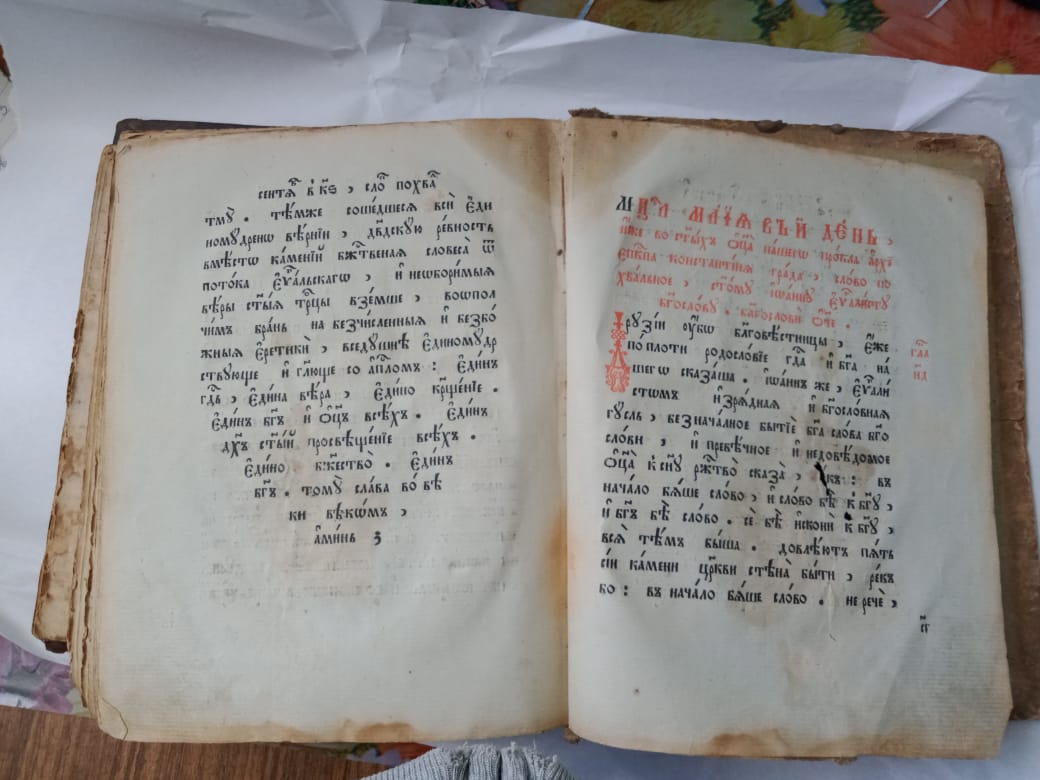 сентѧ҃ в҃ кѕ , сло҃ похва҃
тмꙋ̀ . тѣ́мже соше́дшесѧ всѝ є҆ди
номꙋ́дренѡ вѣ́рнїи , дв҃дскꙋю ре́вность
вмѣ́стѡ ка́менїй бж҃твеная словеса̀ ѿ
пото́ка є҆ѵⷢ҇а́льскагѡ , и҆ неѡбори́мыѧ
вѣ́ры ст҃ы́ѧ трⷪ҇цы взе́мше , воѡпол
чи́мъ бра́нь на безчи́сленныѧ и҆ безбо́
жныѧ є҆ретикѝ , вседꙋ́шнѣ є҆диномꙋ́др
ствꙋюще и҆ гл҃юще со а҆пⷭ҇ломъ : є҆ди́нъ
гдⷭ҇ь , є҆ди́на вѣ́ра , є҆ди́но крⷳ҇ще́нїе .
є҆ди́нъ бг҃ъ и҆ ѻ҆ц҃ъ всѣ́хъ . є҆ди́нъ
дх҃ъ ст҃ы́й просвѣще́нїе всѣ́хъ .
є҆ди́но бжⷭ҇тво̀ . є҆ди́нъ
бг҃ъ . томꙋ̀ сла́ва во́ вѣ
ки вѣкѡ́мъ ,
а҆ми́нь
мцⷭ҇а ма́їѧ въ и҃ де́нь ,
и҆́же во ст҃ы́хъ ѻ҆ц҃а̀ на́шегѡ про́кла а҆рхїе
є҆пⷭ҇кпа константи́нѧ гра́да , сло́во по
хва́льное , ст҃о́мꙋ і҆ѡа́ннꙋ є҆ѵⷢ҇ли́стꙋ
бг҃осло́вꙋ . бл҃гословѝ ѻ҆́ч҃е .
Дрꙋзі́и ᲂу҆́бѡ бл҃говѣ́стницы , є҆́же
по пло́ти родосло́вїе гдⷭ҇а и҆ бг҃а на́
шегѡ сказа́ша . і҆ѡа́ннъ же , є҆ѵⷢ҇али́
стомъ и҆зрѧ́днаѧ и҆ бг҃осло́внаѧ
гꙋ́сль , безнача́лное бытїѐ бг҃а сло́ва бг҃о
сло́ви , и҆ превѣ́чное и҆ недовѣ́домое
ѻ҆ц҃а̀ к сн҃ꙋ ржⷭ҇тво̀ сказа̀ , ре́къ : въ
нача́ло бѧ́ше сло́во , и҆ сло́во бѣ̀ к бг҃ꙋ ,
и҆ бг҃ъ бѣ̀ сло́во . сѐ бѣ̀ и҆сконѝ к бг҃ꙋ ,
всѧ̀ тѣ́мъ бы́ша . довлѣ́ютъ пѧ́ть
сі́и ка́мени цр҃кви стѣна̀ бы́ти , ре́къ
бо : въ нача́ло бѧ́ше сло́во . не речѐ ,